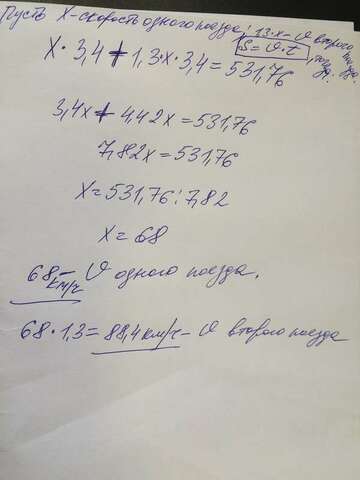 Пусть x - скорость одного поезда; 1,3·x - υ второго поезда,
S = υ·t
x · 3,4 + 1,3·x · 3,4 = 531,76
3,4x + 4,42x = 531,76
7,82x = 531,76
x = 531,76 : 7,82
x = 68
68 км/ч - υ одного поезда.
68 · 1,3 = 88,4 км/ч - υ второго поезда